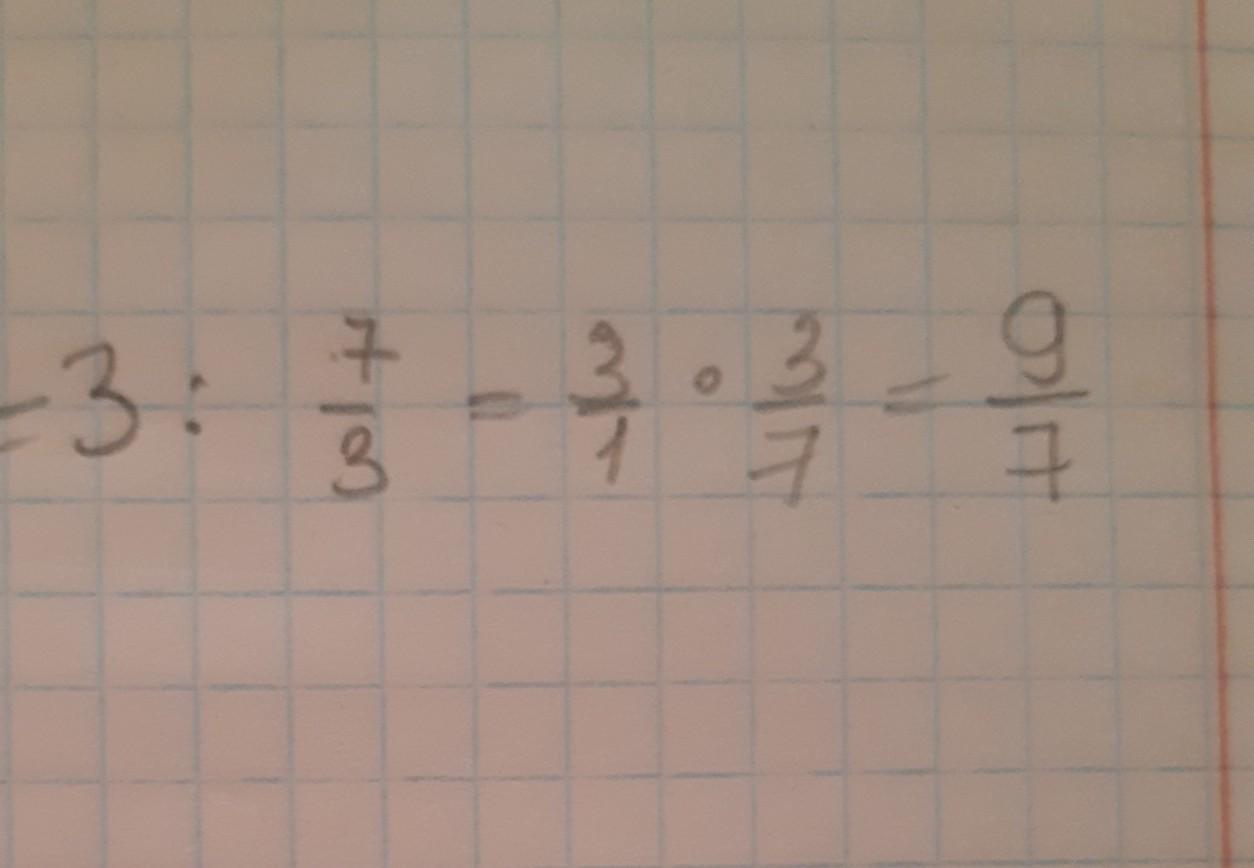 = 3 : 7/3 = 3/1 · 3/7 = 9/7